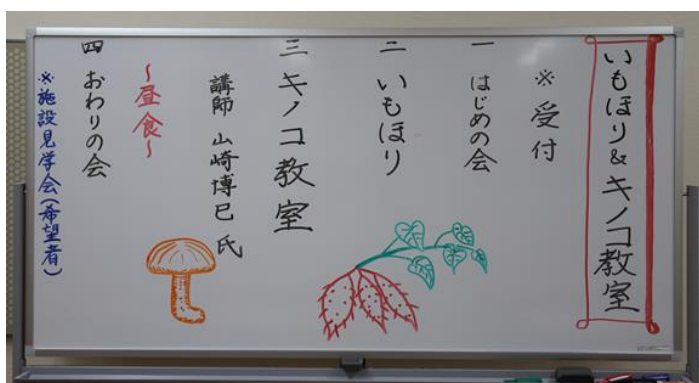 いもほり&キノコ教室
※受付
一 はじめの会
二 いもほり
三 キノコ教室
講師 山崎博巳 氏
～昼食～
四 おわりの会
※施設見学会(希望者)